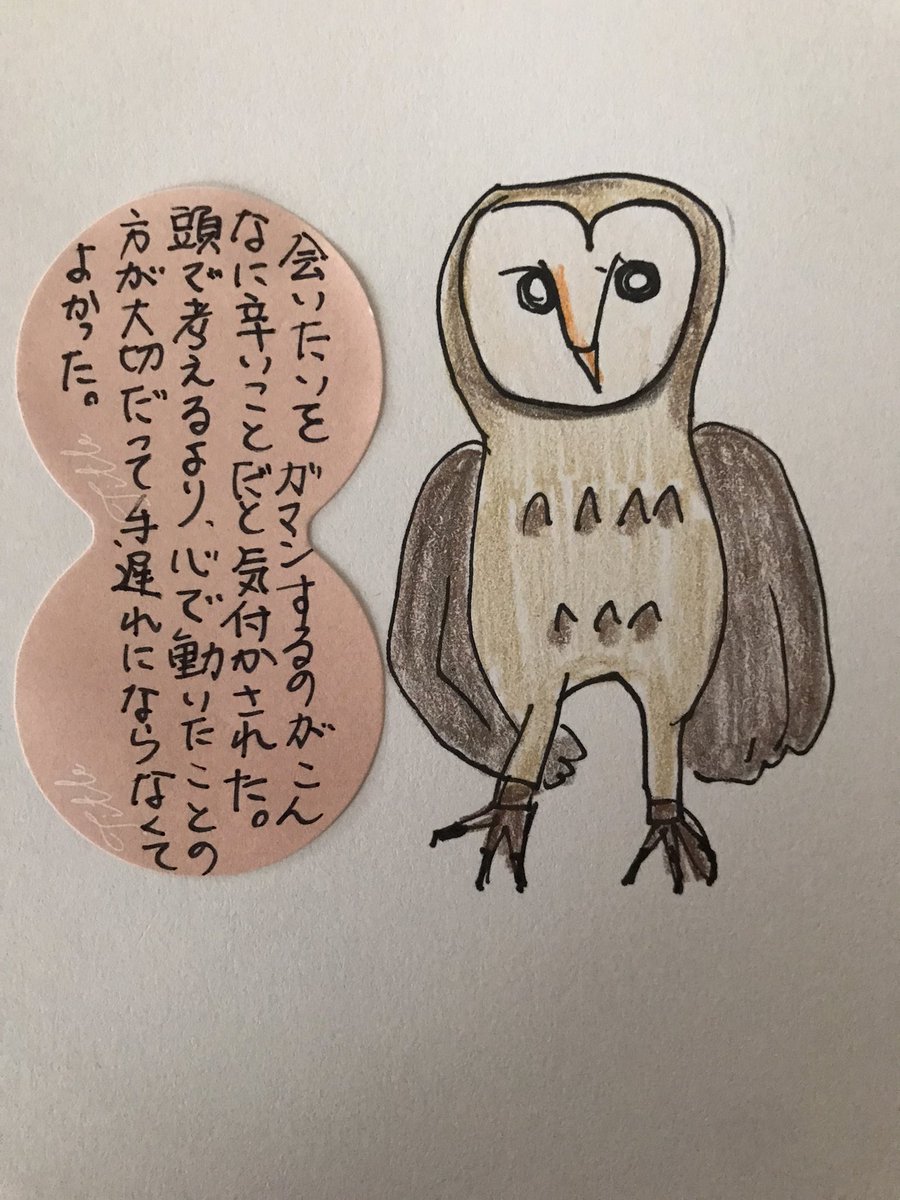 会いたいをガマンするのがこん
なに辛いことだと気付かされた。
頭で考えるより、心で動いたことの
方が大切だって手遅れにならなくて
よかった。